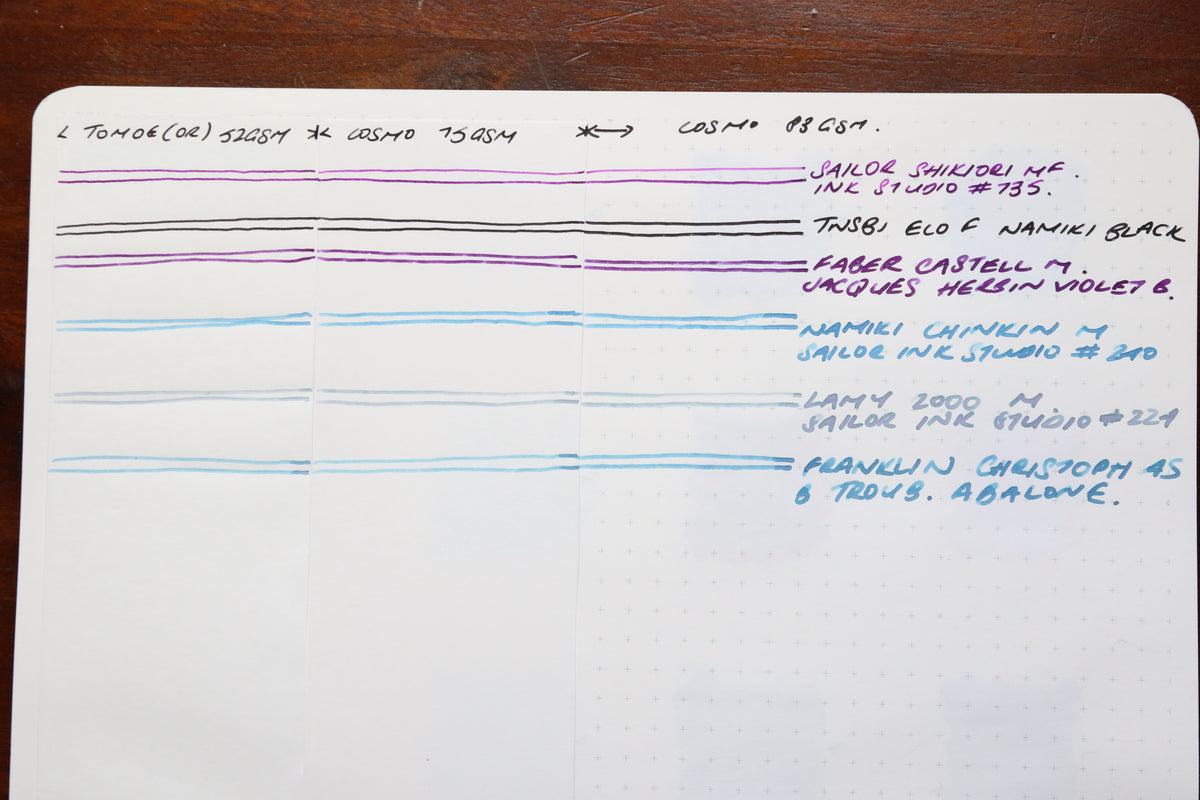 < TOMOE(OR) 52GSM * < COSMO 75GSM * <-> COSMO 83GSM.
SAILOR SHIKIORI MF.
INK STUDIO #735.
TWSBI ECO F NAMIKI BLACK
FABER CASTELL M.
JACQUES HERBIN VIOLET B.
NAMIKI CHINKIN M
SAILOR INK STUDIO # 240
LAMY 2000 M.
SAILOR INK STUDIO #224
FRANKLIN CHRISTOPH 45
B TROUB. ABALONE.